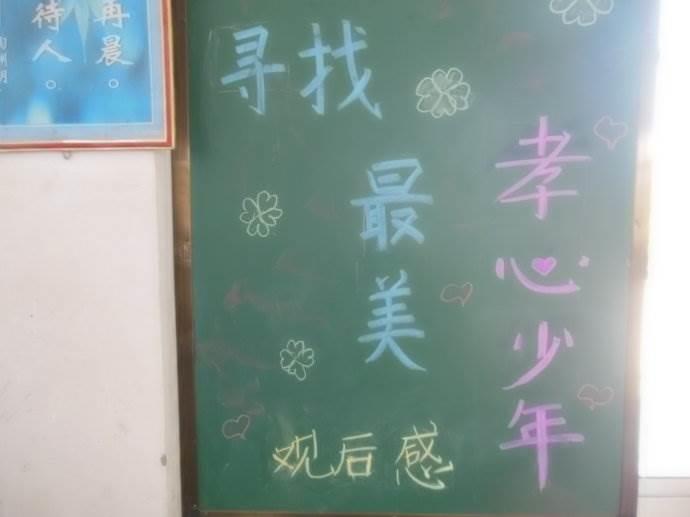 再晨。
待人。
寻找
最美
孝心少年
观后感